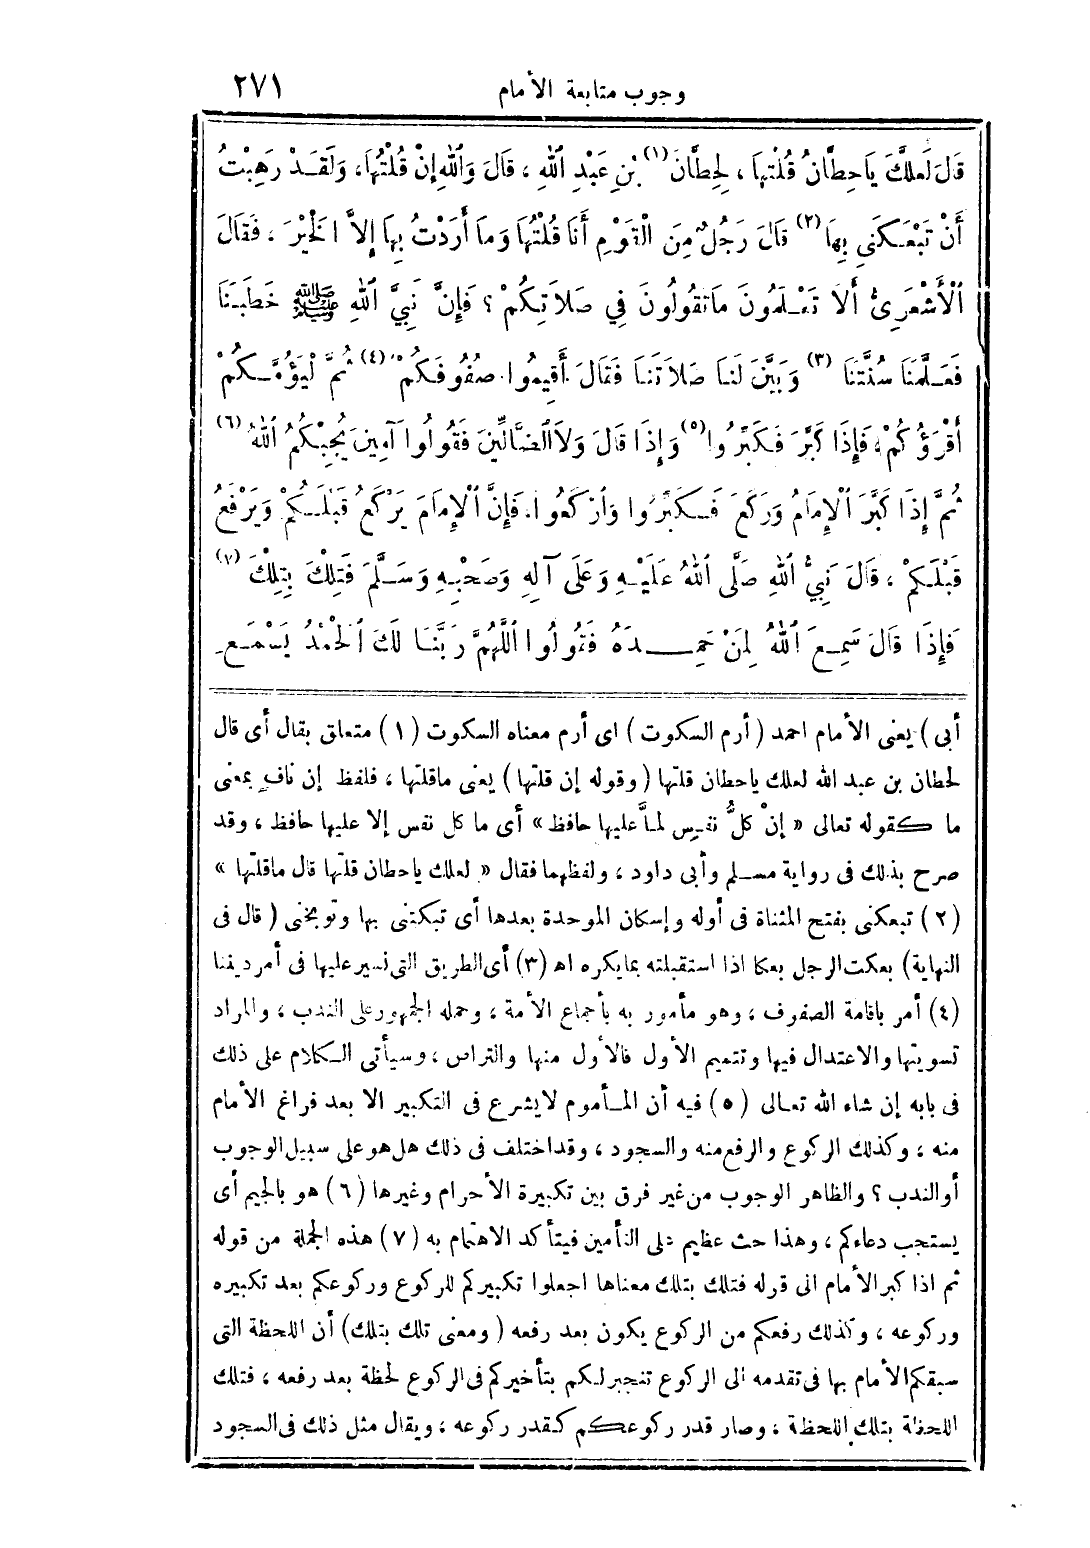 وجوب متابعة الأمام ٢٧١
قَالَ لَعَلَّكَ يَاحِطَّانُ قُلْتَهَا ، لِحِطَّانَ (١) بْنِ عَبْدِ اللهِ ، قَالَ وَاللهِ إنْ قُلْتُهَا، وَلَقَدْ رَهِبْتُ
أَنْ تَبْعَكَنِي بِهَا (٢) قَالَ رَجُلٌ مِنَ الْقَوْمِ أَنَا قُلْتُهَا وَمَا أَرَدْتُ بِهَا إلاَّ الْخَيْرَ ، فَقَالَ
الْأَشْعَرِىُّ أَلَا تَعْلَمُونَ مَاتَقُولُونَ فِي صَلَاتِكُمْ ؟ فَإِنَّ نَبِيَّ اللهِ ﷺ خَطَبَنَا
فَعَلَّمَنَا سُنَّتَنَا (٣) وَبَيَّنَ لَنَا صَلَاتَنَا فَقَالَ أَقِيمُوا صُفُوفَكُمْ (٤) ثُمَّ لْيَؤُمَّكُمْ
أَقْرَؤُكُمْ، فَإِذَا كَبَّرَ فَكَبِّرُوا (٥) وَإِذَا قَالَ وَلَا الضَّالِّينَ فَقُولُوا آمِينَ يُجِبْكُمُ اللهُ (٦)
ثُمَّ إِذَا كَبَّرَ الْإِمَامُ وَرَكَعَ فَكَبِّرُوا وَارْكَعُوا، فَإِنَّ الْإِمَامَ يَرْكَعُ قَبْلَكُمْ وَيَرْفَعُ
قَبْلَكُمْ ، قَالَ نَبِيُّ اللهِ صَلَّى اللهُ عَلَيْهِ وَعَلَى آلِهِ وَصَحْبِهِ وَسَلَّمَ فَتِلْكَ بِتِلْكَ (٧)
فَإِذَا قَالَ سَمِعَ اللهُ لِمَنْ حَمِدَهُ فَقُولُوا اللَّهُمَّ رَبَّنَا لَكَ الْحَمْدُ يَسْمَعِ
أبى ) يعنى الأمام احمد ( أرم السكوت ) اى أرم معناه السكوت (١) متعلق بقال أى قال
لحطان بن عبد الله لعلك ياحطان قلتها ( وقوله إن قلتها ) يعنى ماقلتها ، فلفظ إن ناف بمعنى
ما كقوله تعالى « إنْ كلُّ نفسٍ لمـَّا عليها حافظ » أى ما كل نفس إلا عليها حافظ ، وقد
صرح بذلك فى رواية مسلم وأبى داود ، ولفظهما فقال « لعلك ياحطان قلتها قال ماقلتها »
(٢) تبعكنى بفتح المثناة فى أوله وإسكان الموحدة بعدها أى تبكتنى بها وتوبخنى ( قال فى
النهاية) بعكت الرجل بعكا اذا استقبلته بمايكره اه (٣) أى الطريق التى نسير عليها فى أمر ديننا
(٤) أمر باقامة الصفوف ، وهو مأمور به بأجماع الأمة ، وحمله الجمهور على الندب ، والمراد
تسويتها والاعتدال فيها وتتميم الأول فالأول منها والتراص ، وسيأتى الكلام على ذلك
فى بابه إن شاء الله تعالى (٥) فيه أن المأموم لايشرع فى التكبير الا بعد فراغ الأمام
منه ، وكذلك الركوع والرفع منه والسجود ، وقد اختلف فى ذلك هل هو على سبيل الوجوب
أو الندب ؟ والظاهر الوجوب من غير فرق بين تكبيرة الأحرام وغيرها (٦) هو بالجيم أى
يستجب دعاءكم ، وهذا حث عظيم على التأمين فيتأكد الاهتمام به (٧) هذه الجملة من قوله
ثم اذا كبر الأمام الى قوله فتلك بتلك معناها اجعلوا تكبيركم للركوع وركوعكم بعد تكبيره
وركوعه ، وكذلك رفعكم من الركوع يكون بعد رفعه ( ومعنى تلك بتلك) أن اللحظة التى
سبقكم الأمام بها فى تقدمه الى الركوع تنجبر لكم بتأخيركم فى الركوع لحظة بعد رفعه ، فتلك
اللحظة بتلك اللحظة ، وصار قدر ركوعكم كقدر ركوعه ، ويقال مثل ذلك فى السجود